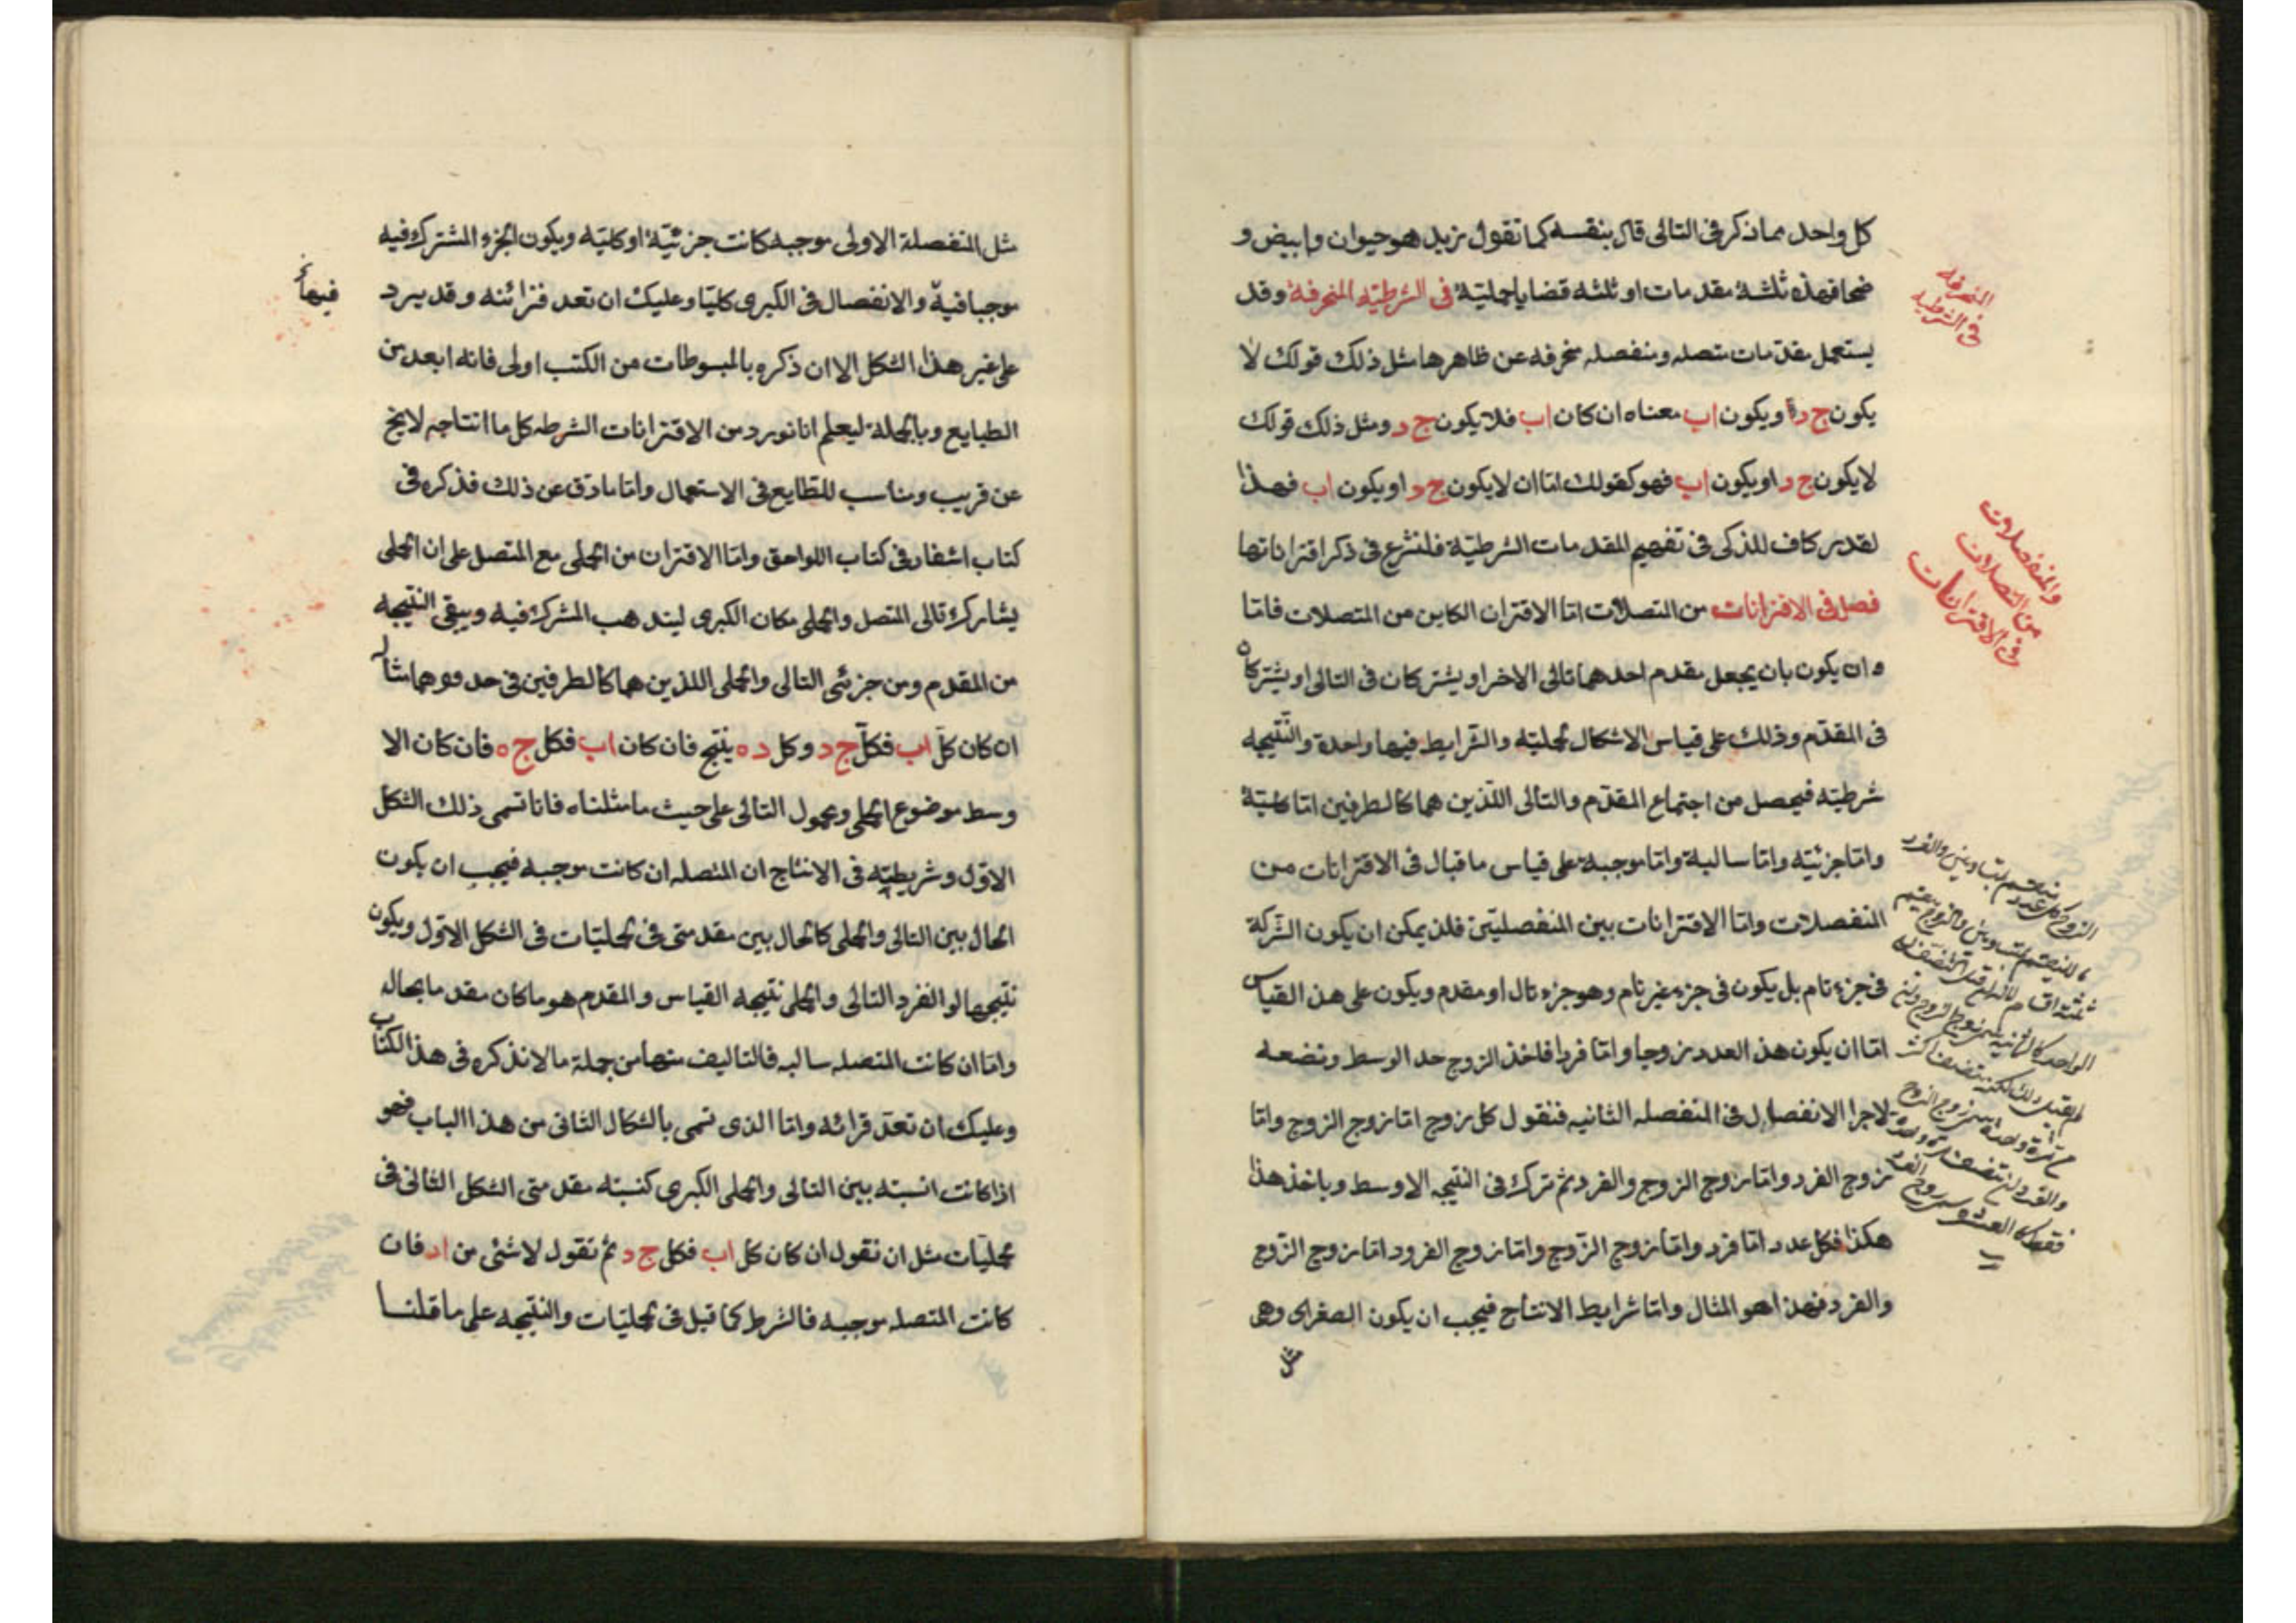 كل واحد مما ذكر فى التالى قال بنفسه كما تقول زيد هو حيوان وابيض و
ضحاك فهذه ثلثة مقدمات او ثلثه قضايا حمليّة فى الشرطيّه المنحرفة وقد
يستعمل مقدمات متصله ومنفصله منحرفه عن ظاهرها مثل ذلك قولك لا
يكون ج د او يكون اب معناه ان كان اب فلا يكون ج د ومثل ذلك قولك
لا يكون ج د او يكون اب فهو كقولك امّا ان لا يكون ج د او يكون اب فهذا
لقدر كاف للذكى فى تفهيم المقدمات الشرطيّة فلنشرع فى ذكر اقتراناتها
فصل فى الاقترانات من المتصلات امّا الاقتران الكاين من المتصلات فامّا
وان يكون بان يجعل مقدم احدهما تالى الاخر او يشتركان فى التالى او يشتركان
فى المقدّم وذلك على قياس الاشكال لحمليّه والشرايط فيها واحدة والنّتيجه
شرطيّه فيحصل من اجتماع المقدّم والتالى اللّذين هما كالطرفين امّا كليّة
وامّا جزئيّه وامّا سالبة وامّا موجبة على قياس ما قبال فى الاقترانات من
المنفصلات وامّا الاقترانات بين المنفصليّن فلن يمكن ان يكون الشّركة
فى جزء تام بل يكون فى جزء غير تام وهو جزء تال او مقدم ويكون على هذ القياس
امّا ان يكون هذ العدد زوجا وامّا فردا فاخذ الزوج حد الوسط ونضعه
لاجرا الانفصال فى المنفصله الثانيه فنقول كل زوج امّا زوج الزوج وامّا
زوج الفرد وامّا زوج الزوج والفرد ثم ترك فى النّتيجه الاوسط وياخذ هذا
هكذا فكل عدد امّا فرد وامّا زوج الزّوج وامّا زوج الفرد وامّا زوج الزّوج
والفرد فهذا هو المثال وامّا شرايط الانتاج فيجب ان يكون الصغرى وهى
مثل
المنحرفة
فى الشرطيه
والمنفصلات
من المتصلات
فى الاقترانات
مثل المنفصلة الاولى موجبه كانت جزئيّة او كليّه ويكون الجزء المشترك فيه
موجبا فيه والانفصال فى الكبرى كليّا وعليك ان تعد قرائنه وقد يرد
فيها
على غير هذا الشكل الا ان ذكره بالمبسوطات من الكتب اولى فانه ابعد من
الطبايع وبالجملة ليعلم انا نورد من الاقترانات الشرطه كل ما انتاجه لا يخ
عن قريب ومناسب للطبايع فى الاستعمال وامّا ما دق عن ذلك فذكره فى
كتاب اشفا وفى كتاب اللواحق وامّا الاقتران من الحملى مع المتصل على ان الحملى
يشارك تالى المتصل والحملى مكان الكبرى ليذهب المشرك فيه ويبقى النتيجه
من المقدم ومن جزئى التالى والحملى اللذين هما كالطرفين فى حدوهما مثاله
ان كان كلّ اب فكلّ ج د وكل د ه ينتج فان كان اب فكل ج ه فان كان الا
وسط موضوع الحملى ومحمول التالى على حيث ما مثلناه فانا نسمى ذلك الشكل
الاوّل وشريطيّه فى الانتاج ان المتصله ان كانت موجبه فيجب ان يكون
الحال بين التالى والحملى كالحال بين مقدمتى فى لحمليّات فى الشكل الاوّل ويكون
نتيجهما لو انفرد التالى والحملى نتيجه القياس والمقدم هو ما كان مقدما بحاله
وامّا ان كانت المتصله سالبه فالتاليف منها من جملة ما لا نذكره فى هذ الكتاب
وعليك ان تعدّ قرائه وامّا الذى نسمى بالشكال الثانى من هذا الباب فهو
اذا كانت انسبته بين التالى والحملى الكبرى كنسبته مقدمتى الشكل الثانى فى
لحمليّات مثل ان نقول ان كان كل اب فكل ج د ثم نقول لا شئى من ا د فان
كانت المتصله موجبه فالشرط كما قبل فى لحمليّات والنّتيجه على ما قلنا